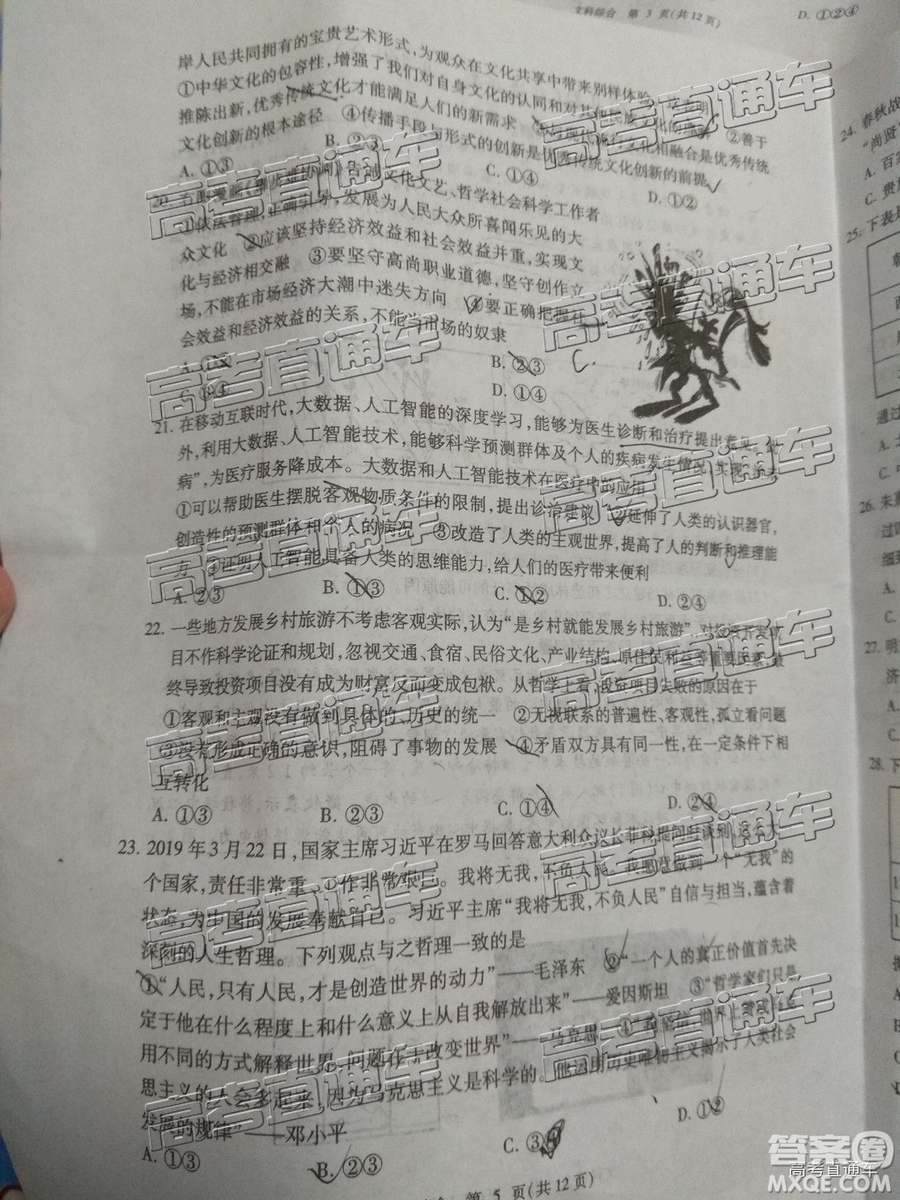 文科综合 第 3 页(共12页)
D. ①②④
岸人民共同拥有的宝贵艺术形式,为观众在文化共享中带来别样体验。这表明
①中华文化的包容性,增强了我们对自身文化的认同和对其他民族文化的 ②善于
推陈出新,优秀传统文化才能满足人们的新需求 文化相融合是优秀传统
文化创新的根本途径 ④传播手段与形式的创新是优秀传统文化创新的前提
A. ①③
B. ②③
C. ①④
D. ①②
文化文艺、哲学社会科学工作者
①依法管理,正确引导,发展为人民大众所喜闻乐见的大
众文化 ②应该坚持经济效益和社会效益并重,实现文
化与经济相交融 ③要坚守高尚职业道德,坚守创作立
场,不能在市场经济大潮中迷失方向 ④要正确把握社
会效益和经济效益的关系,不能当市场的奴隶
A. ①②
B. ②③
C.
C. ③④
D. ①④
21. 在移动互联时代,大数据、人工智能的深度学习,能够为医生诊断和治疗提出意见。此
外,利用大数据、人工智能技术,能够科学预测群体及个人的疾病发生情况,实现
病”,为医疗服务降成本。大数据和人工智能技术在医疗中的应用
①可以帮助医生摆脱客观物质条件的限制,提出诊治建议 ②延伸了人类的认识器官,
创造性的预测群体和个人的病况 ③改造了人类的主观世界,提高了人的判断和推理能
力 ④证明人工智能具备人类的思维能力,给人们的医疗带来便利
A. ②③
B. ①③
C. ①②
D. ②④
22. 一些地方发展乡村旅游不考虑客观实际,认为“是乡村就能发展乡村旅游”,对投资开发项
目不作科学论证和规划,忽视交通、食宿、民俗文化、产业结构、原住民利益等重要因素,最
终导致投资项目没有成为财富反而变成包袱。从哲学上看,投资项目失败的原因在于
①客观和主观没有做到具体的、历史的统一 ②无视联系的普遍性、客观性,孤立看问题
③没有形成正确的意识,阻碍了事物的发展 ④矛盾双方具有同一性,在一定条件下相
互转化
A. ①③
B. ②③
C. ①④
D. ②④
23. 2019年3月22日,国家主席习近平在罗马回答意大利众议长菲科提问时谈到,这么大一
个国家,责任非常重、工作非常艰巨。我将无我,不负人民。我愿意做到一个“无我”的
状态,为中国的发展奉献自己。习近平主席“我将无我,不负人民”自信与担当,蕴含着
深刻的人生哲理。下列观点与之哲理一致的是
①“人民,只有人民,才是创造世界的动力”——毛泽东 ②“一个人的真正价值首先决
定于他在什么程度上和什么意义上从自我解放出来”——爱因斯坦 ③“哲学家们只是
用不同的方式解释世界,问题在于改变世界”——马克思 ④“我坚信,世界上赞成马克
思主义的人会多起来,因为马克思主义是科学的。他运用历史唯物主义揭示了人类社会
发展的规律”——邓小平
A. ①③
B. ②③
C. ③④
D. ①②
第 5 页(共12页)
24. 春秋战
“尚贤”
A. 百
C. 贵
25. 下表是
通过
A.
C.
26. 朱熹
过
细
A.
C.
27. 明
济
A.
C.
28. 下
高考直通车
答案圈
MXQE.COM